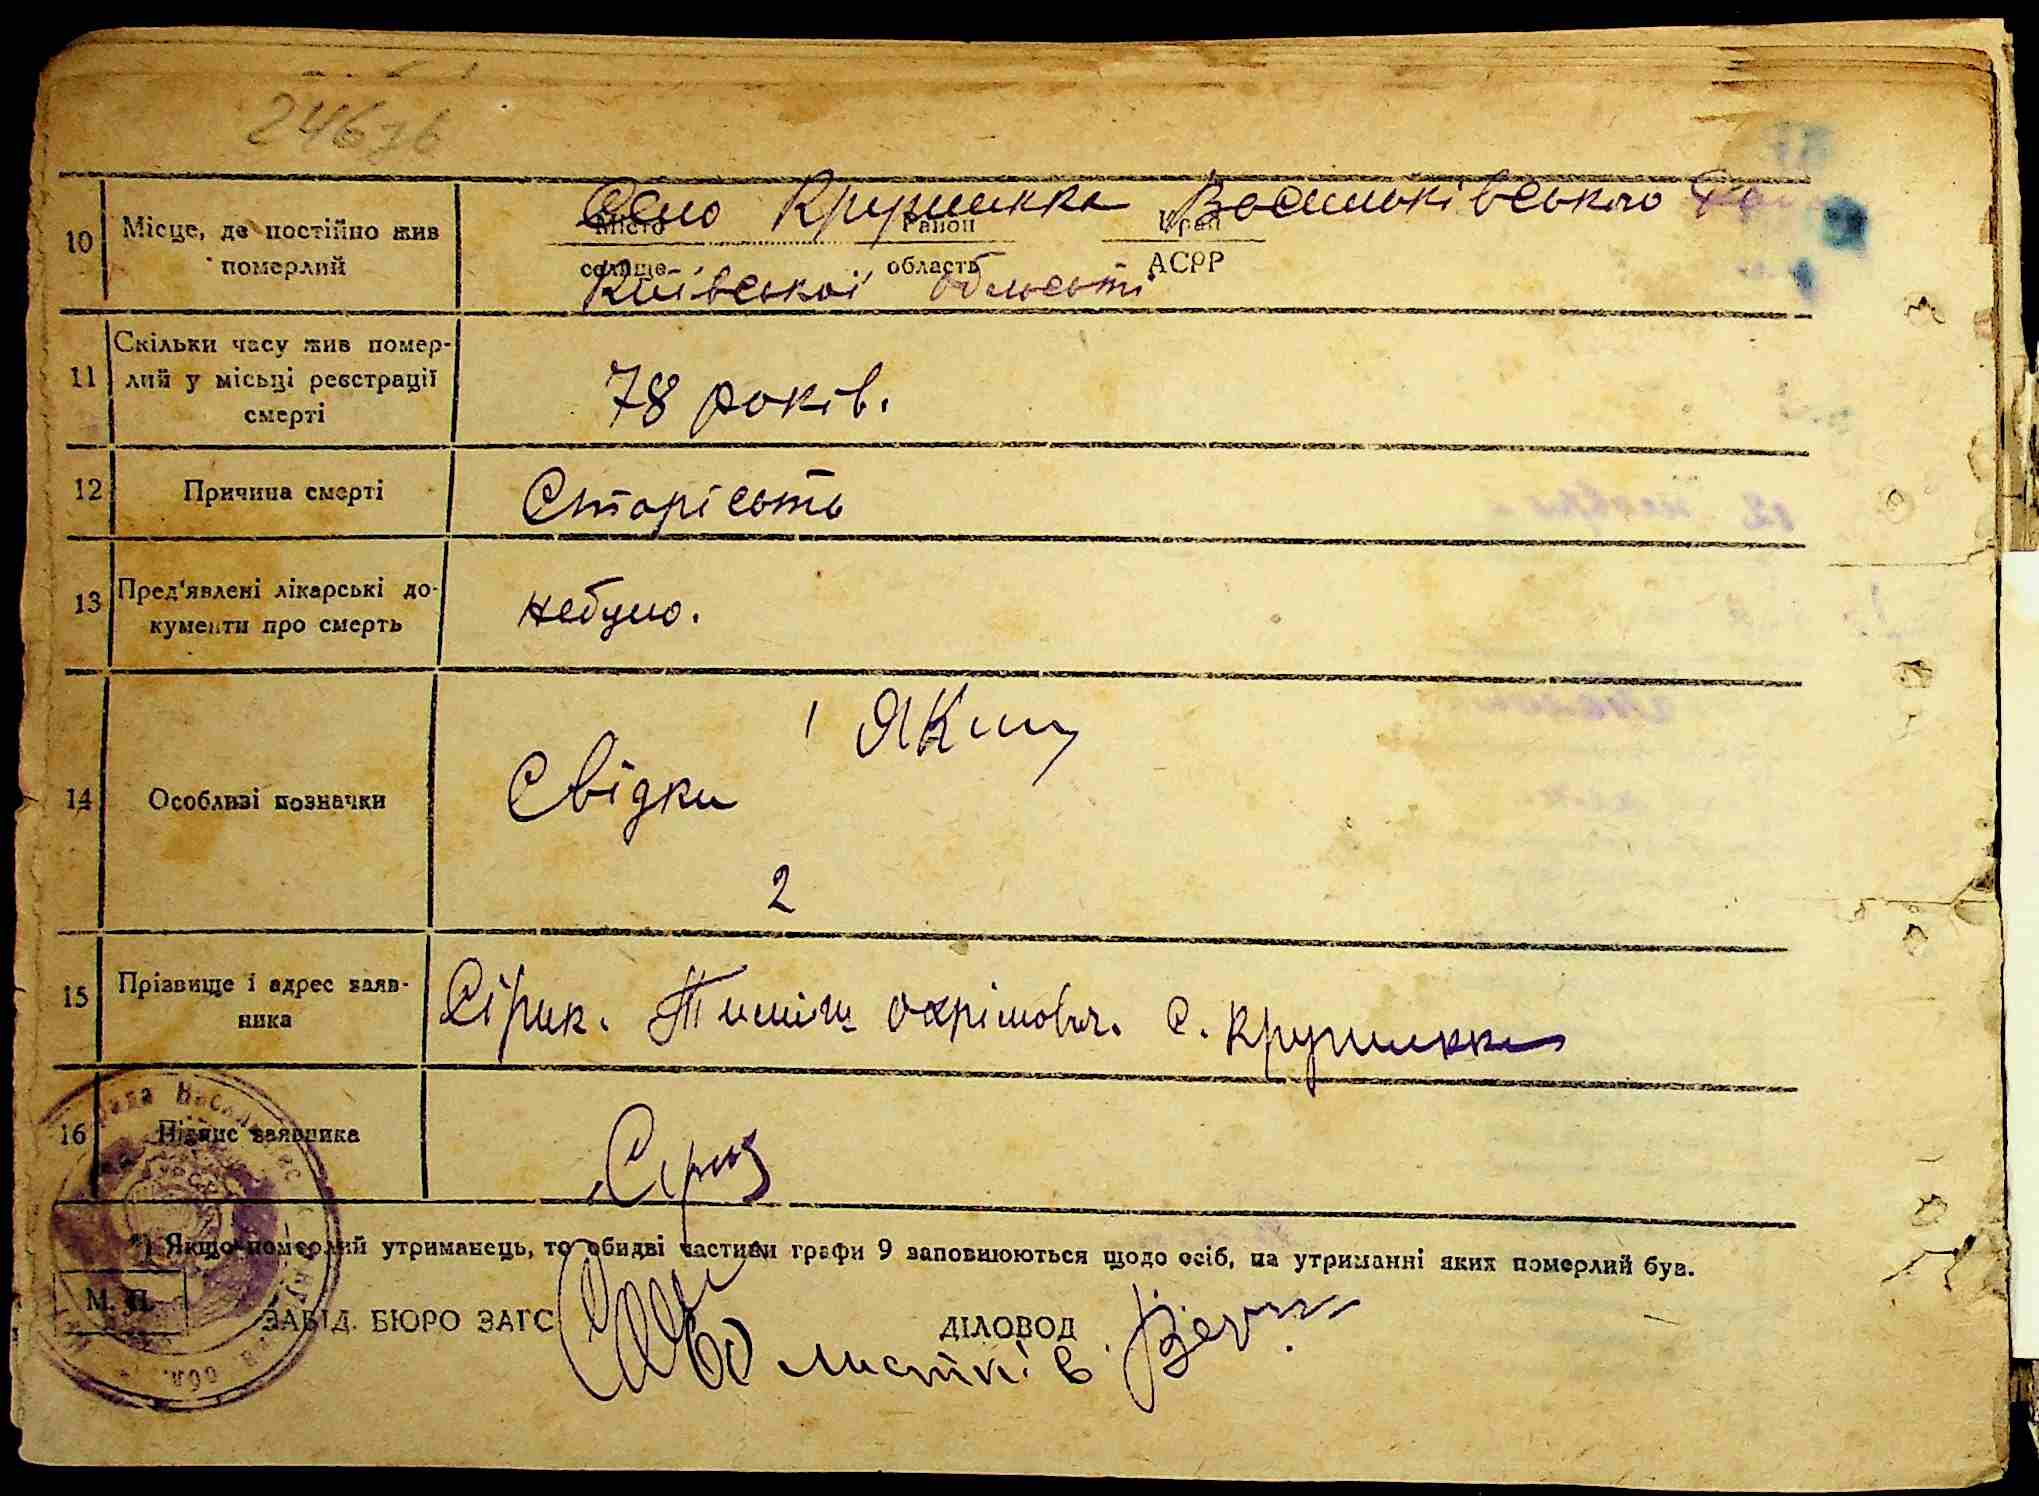 246зв
10 Місце, де постійно жив померлий
Село Крушинка Васильківського Ра
Місто Район Край
селище область АСРР
Київської області
11 Скільки часу жив помер-
лий у місьці реєстрації
смерті
78 років.
12 Причина смерті Старість
13 Пред'явлені лікарські до-
кументи про смерть
небуло.
14 Особливі позначки
1
Свідки
2
15 Прізвище і адрес заяв-
ника
Сірик. Тиміш Охрімович. с. Крушинка
16 Підпис заявника
*) Якщо померлий утриманець, то обидві частини графи 9 заповнюються щодо осіб, на утриманні яких померлий був.
М. П.
ЗАВІД. БЮРО ЗАГС ДІЛОВОД
листків